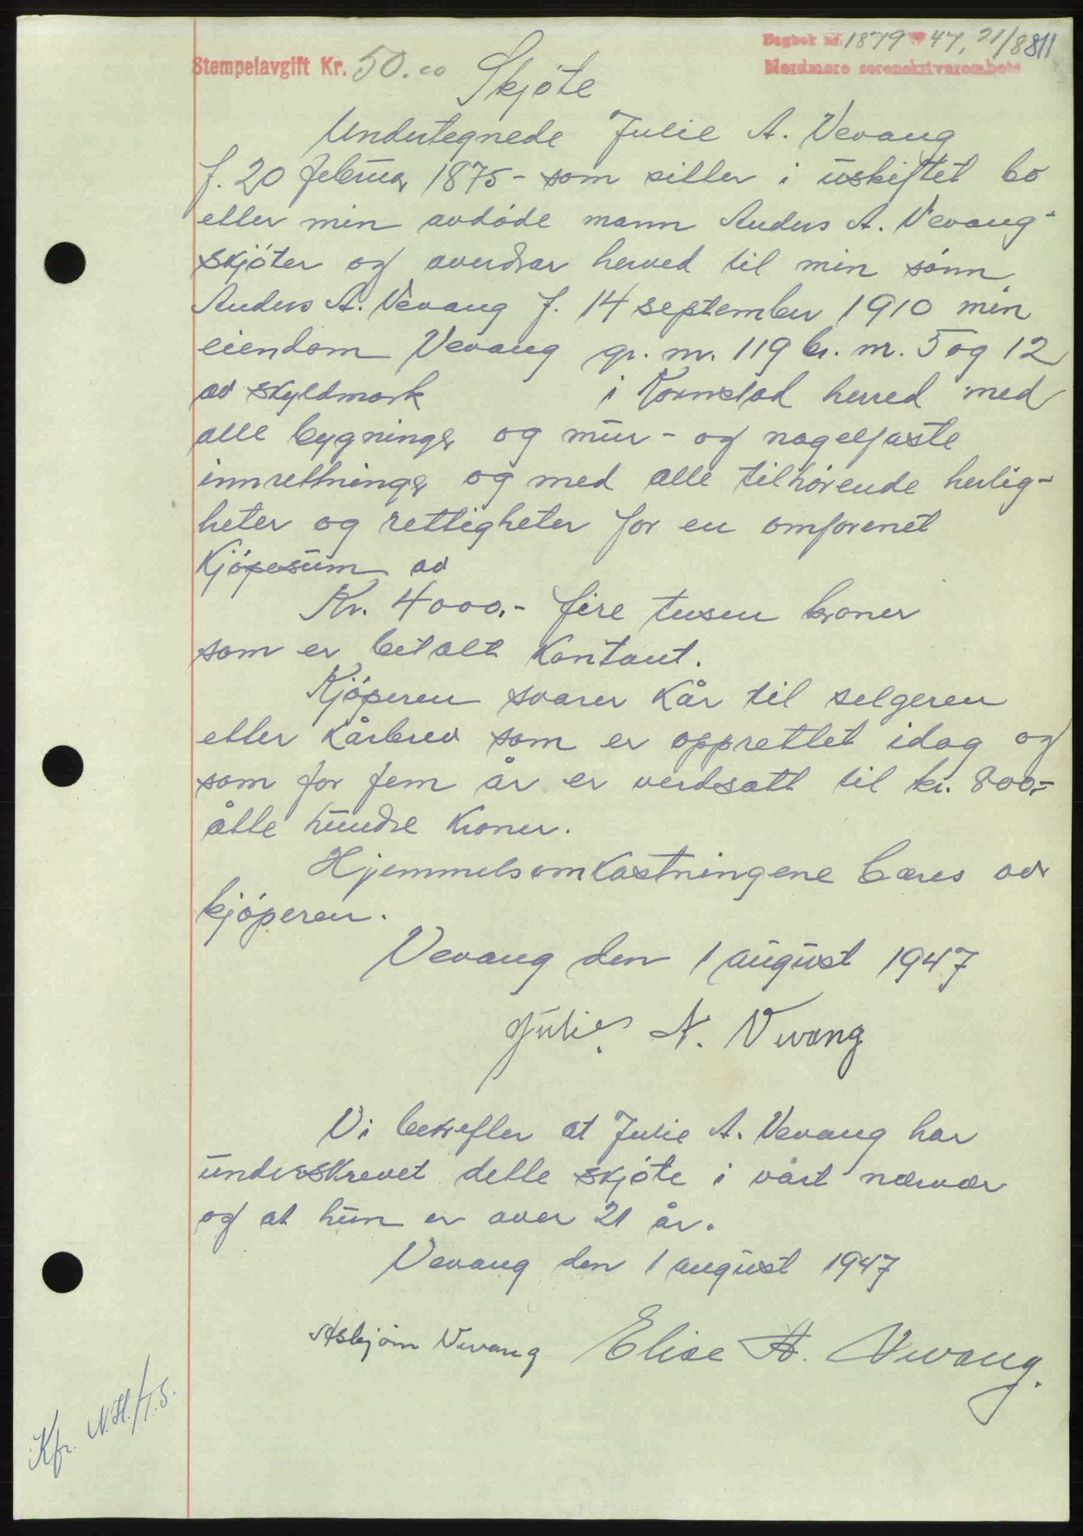 Dagbok nr. 1879 - 47, 21/8 811
Stempelavgift Kr. 50.00
Nordmøre sorenskriverembete
Skjøte
Undertegnede Julie A. Vevang
f. 20 februar 1875 - som sitter i uskiftet bo
etter min avdøde mann Anders A. Vevang -
skjøter og overdrar herved til min sønn
Anders A. Vevang f. 14 september 1910 min
eiendom Vevang gr. nr. 119 br. nr. 5 og 12
av skyldmark i Kornstad herred med
alle bygninger og mur- og nagelfaste
innretninger og med alle tilhørende herlig-
heter og rettigheter for en omforenet
Kjøpesum av
Kr. 4000,- fire tusen kroner
som er betalt kontant.
Kjøperen svarer kår til selgeren
etter kårbrev som er opprettet idag og
som for fem år er verdsatt til kr. 800,-
åtte hundre kroner.
Hjemmelsomkostningene bæres av
kjøperen.
Vevang den 1 august 1947
Julie A. Vevang
Vi bekrefter at Julie A. Vevang har
underskrevet dette skjøte i vårt nærvær
og at hun er over 21 år.
Vevang den 1 august 1947
Asbjørn Vevang Elise A. Vevang.
Kfr. N.H./T.S.